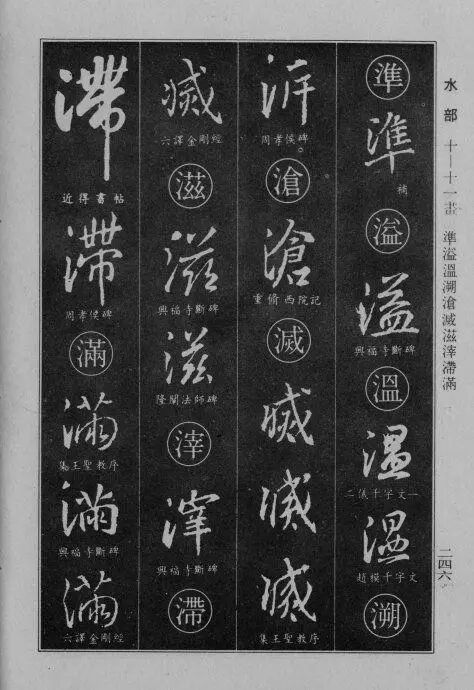 水部 十—十一畫 準溢溫溯滄滅滋滓滯滿
二四六
準
準
補
溢
溢
興福寺斷碑
溫
溫
二儀千字文一
溫
趙模千字文
溯
泝
周孝侯碑
滄
滄
重脩西院記
滅
滅
滅
滅
集王聖教序
滅
六譯金剛經
滋
滋
興福寺斷碑
滋
隆闡法師碑
滓
滓
興福寺斷碑
滯
滯
近得書帖
滯
周孝侯碑
滿
滿
集王聖教序
滿
興福寺斷碑
滿
六譯金剛經